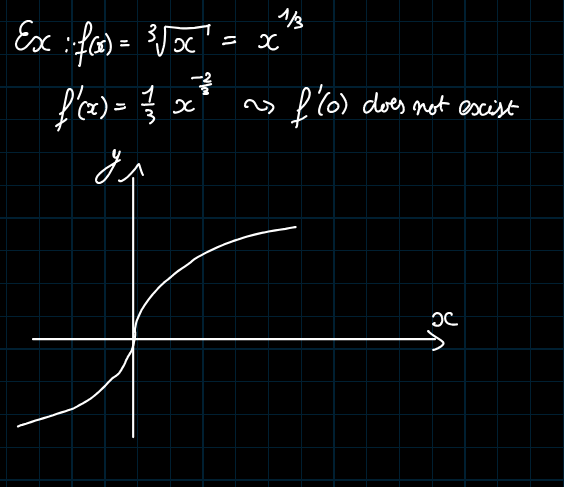 Ex : f(x) = ∛x = x^{1/3}
f'(x) = 1/3 x^{-2/3} ⇝ f'(0) does not exist
y
x